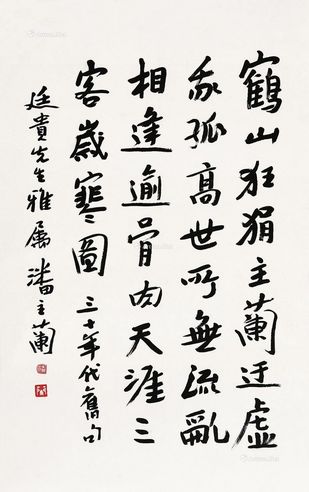 鹤山狂狷主蘭迂虚
我孤高世所無流亂
相逢逾骨肉天涯三
客歲寒圖 三十年代舊句
廷貴先生雅屬 潘主蘭